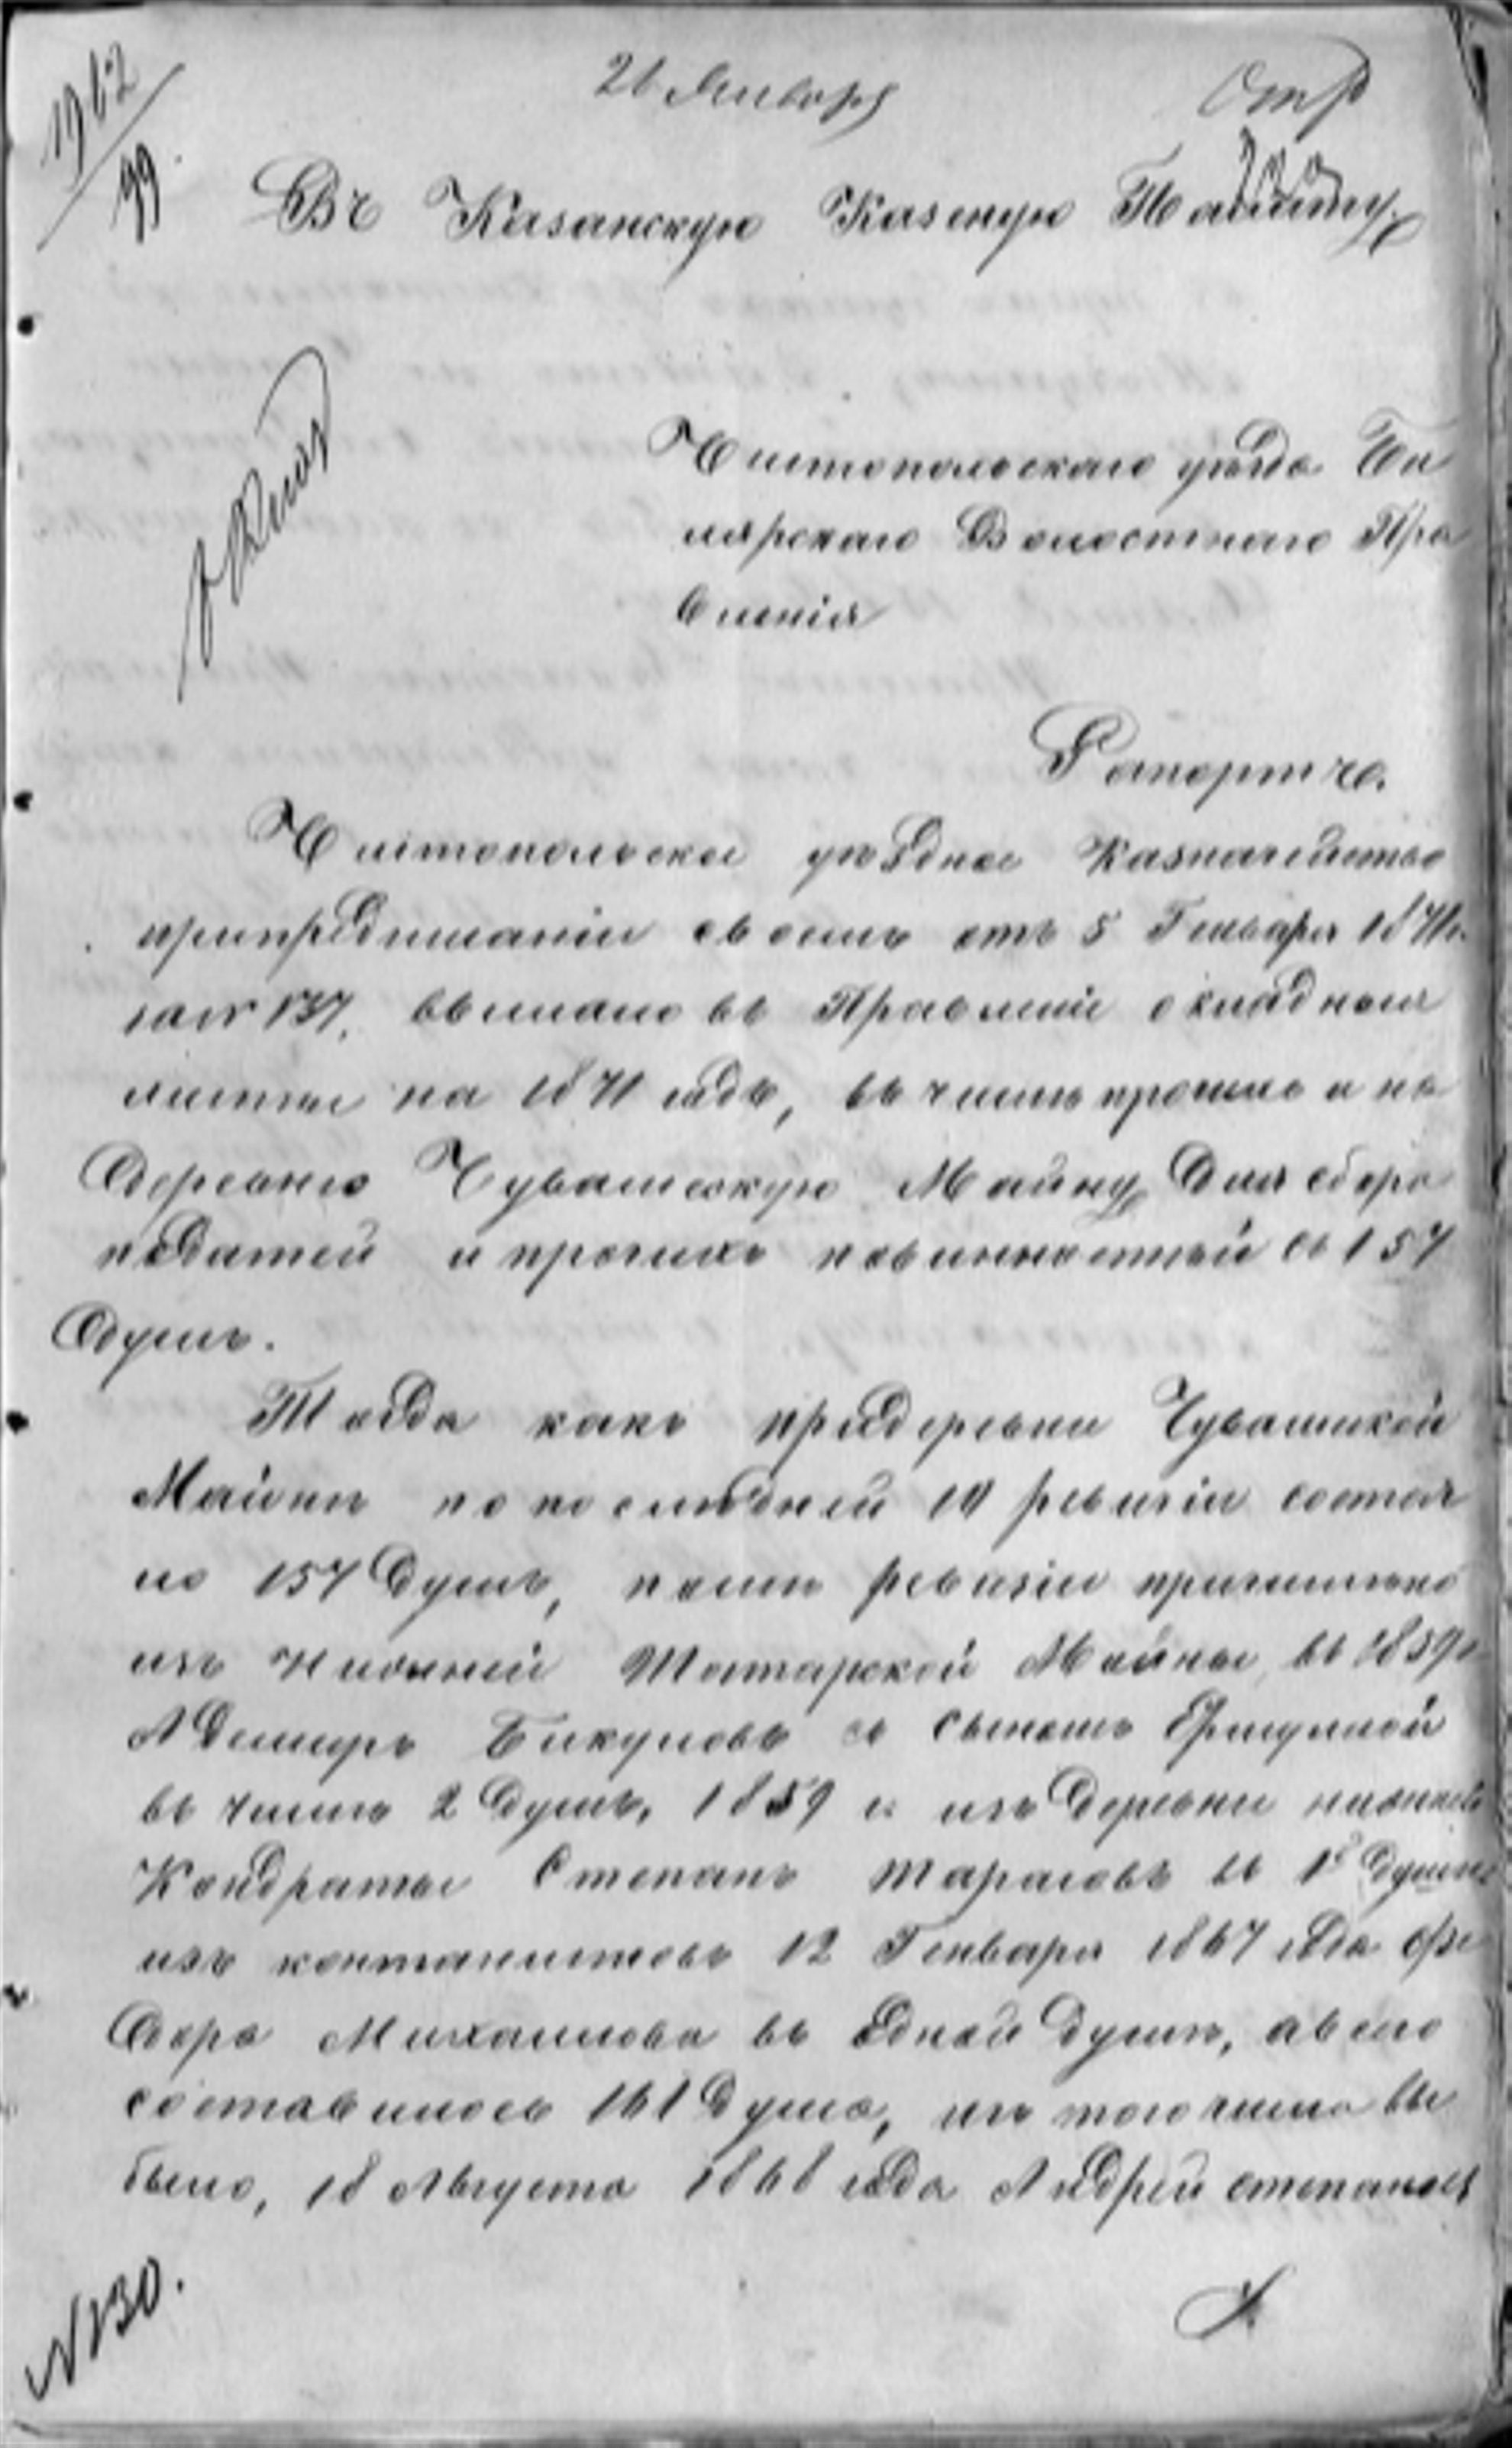 1962
99.
21 Января
Въ Казанскую Казеную Палату
Чистопольскаго уѣзда Би
лярскаго Волостнаго Пра
вленія
Рапортъ.
Чистопольское уѣздное Казначейство
припредписаніи своемъ отъ 5 Генваря 1871 г.
за № 137, выслано въ Правленіе окладныя
листы на 1871 годъ, въ числѣ прочихъ и на
деревню Чувашскую Майну для сбора
податей и прочихъ повинностей съ 157
душъ.
Тогда какъ придеревни Чувашской
Майнѣ по послѣдней 10 ревизіи состоя
ло 157 душъ, послѣ ревизіи причислено
изъ Нижней Татарской Майны въ 1859 г.
Адемиръ Бикуловъ съ сыномъ
въ числѣ 2 душъ, 1859 г. изъ деревни нижней
Кондраты Степанъ Тарасовъ въ 1й душѣ
изъ кантанистовъ 12 Генваря 1867 года Фе
дора Михаилова въ одной душѣ, а всего
составилось 161 душа, изъ того числа вы
было, 18 Августа 1868 года Андрей Степановъ
№ 130.